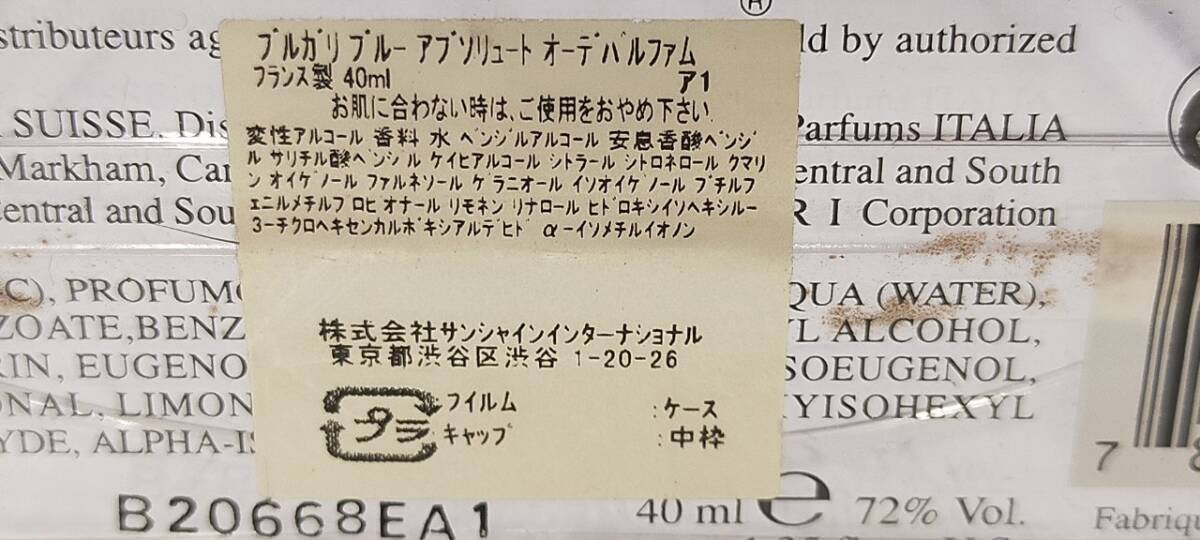 stributeurs ag
ld by authorized
SUISSE. Dis
Parfums ITALIA
Markham, Can
entral and South
Central and Sou
R I Corporation
ブルガリ ブルー アブソリュート オーデパルファム
フランス製 40ml ア1
お肌に合わない時は、ご使用をおやめ下さい。
変性アルコール 香料 水 ベンジルアルコール 安息香酸ベンジ
ル サリチル酸ベンジル ケイヒアルコール シトラール シトロネロール クマリ
ン オイゲノール ファルネソール ゲラニオール イソオイゲノール ブチルフ
ェニルメチルプロピオナール リモネン リナロール ヒドロキシイソヘキシルー
3ーチクロヘキセンカルボキシアルデヒド αーイソメチルイオノン
株式会社サンシャインインターナショナル
東京都渋谷区渋谷 1-20-26
プラ
:フイルム :ケース
キャップ :中枠
C), PROFUMO
QUA (WATER),
ZOATE,BENZ
YL ALCOHOL,
RIN, EUGENO
SOEUGENOL,
ONAL, LIMON
YISOHEXYL
YDE, ALPHA-IS
B20668EA1
40 ml e 72% Vol.
7 8
Fabriqu